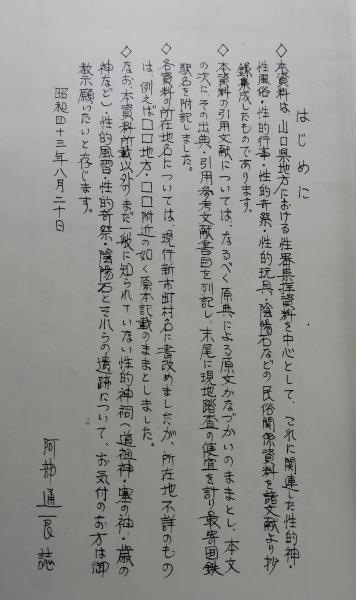 はじめに
◇本資料は、山口県地方における性器崇拝資料を中心として、これに関連した性的神・
性風俗・性的行事・性的奇祭・性的玩具・陰陽石などの民俗関係資料を諸文献より抄
録集成したものであります。
◇本資料の引用文献については、なるべく原典による原文かなづかいのままとし、本文
の次にその出典・引用参考文献書目を列記し、末尾に現地踏査の便宜を計り最寄国鉄
駅名を附記しました。
◇各資料の所在地名については、現行新市町村名に書改めましたが、所在地不詳のもの
は、例えば口口地方・口口附近の如く原本記載のままとしました。
◇なお本資料所載以外のまだ一般に知られていない性的神祠(道祖神・塞の神・歳の
神など)・性的風習・性的奇祭・陰陽石とそれらの遺跡について、お気付のお方は御
教示願いたいと存じます。
昭和四十三年八月二十日
阿部通良誌